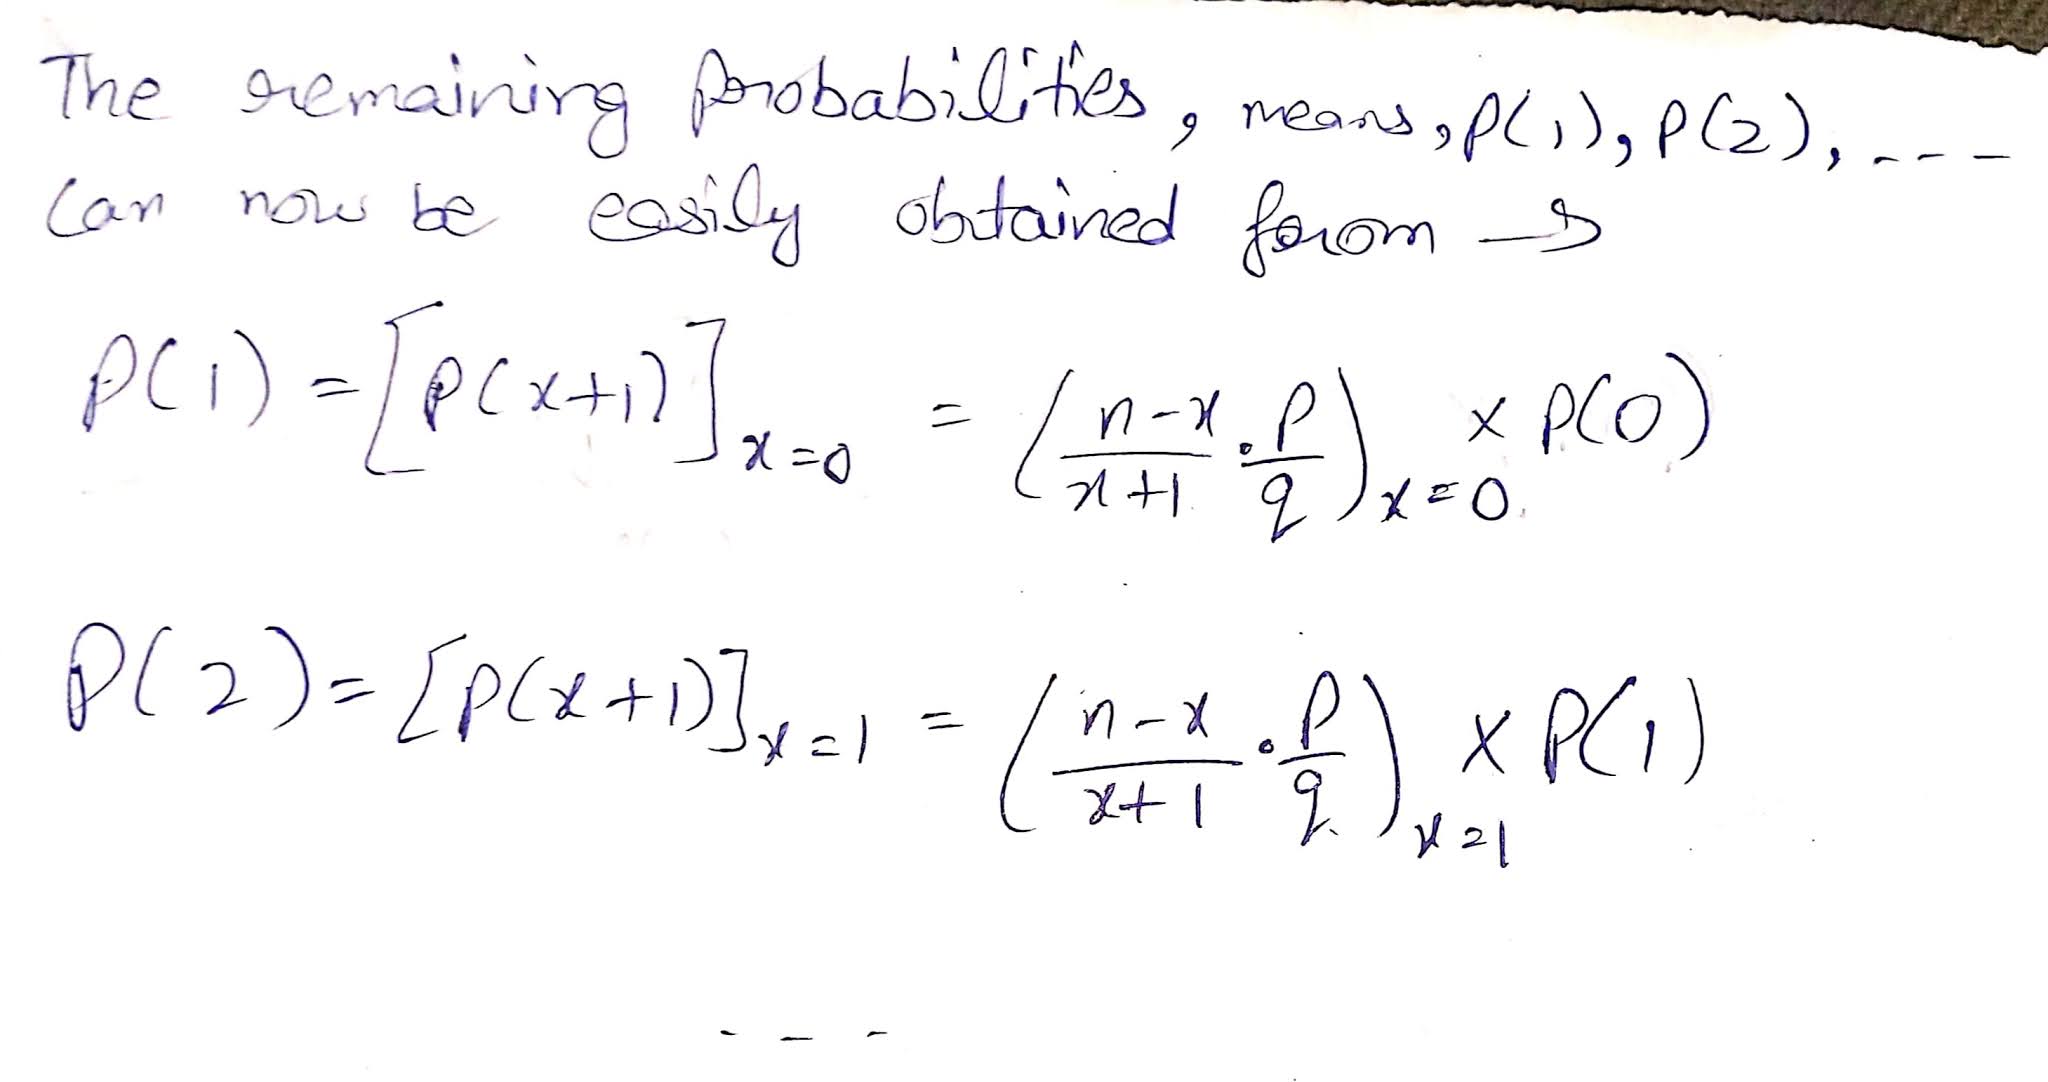 The remaining probabilities, means, P(1), P(2), ---
can now be easily obtained from →
P(1) = [P(x+1)]ₓ₌₀ = (n-x/x+1 . p/q)ₓ₌₀ × P(0)
P(2) = [P(x+1)]ₓ₌₁ = (n-x/x+1 . p/q)ₓ₌₁ × P(1)
- - -